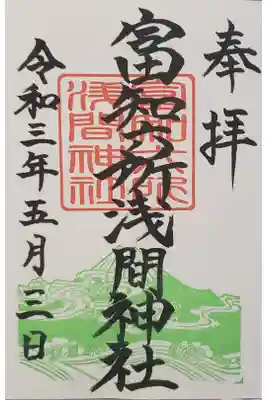 奉拝
富知六所浅間神社
令和三年五月三日
浅間神社